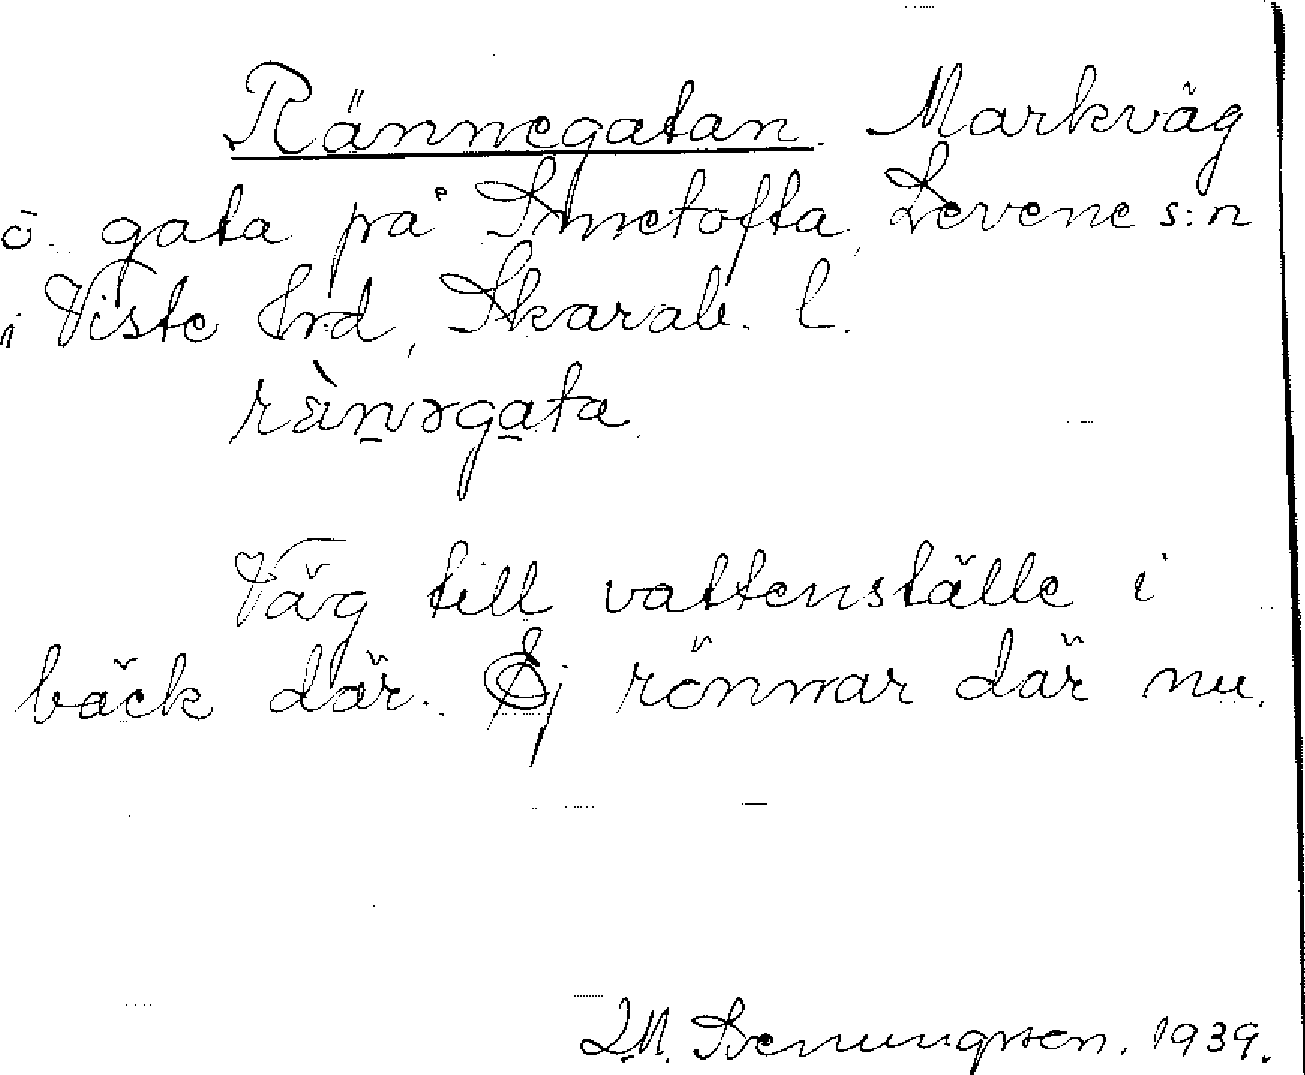 Rännegatan. Markväg
o. gata på Smetofta, Levene s:n
i Viste hrd, Skarab. l.
rä̀nəgata
Väg till vattenställe i
bäck där. Ej rönnar där nu.
1939.